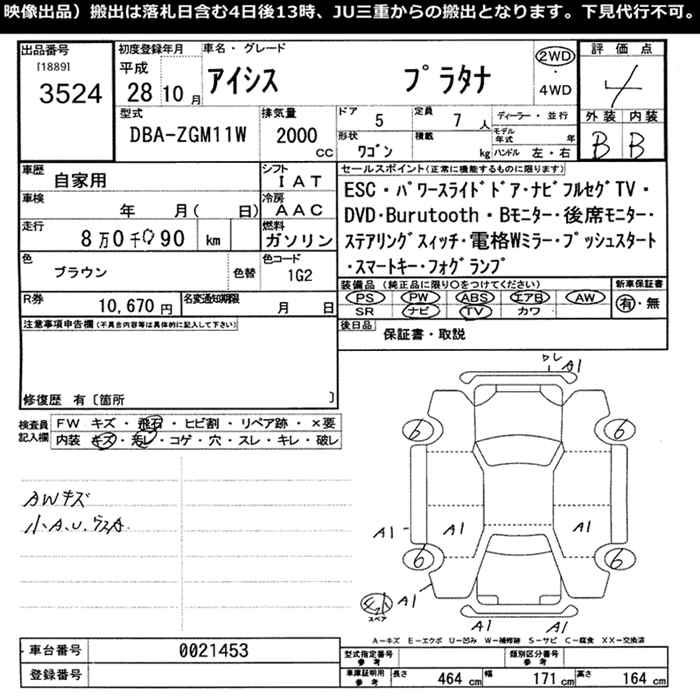 映像出品）搬出は落札日含む4日後13時、JU三重からの搬出となります。下見代行不可。
出品番号
[1889]
3524
初度登録年月
平成
28年10月
車名・グレード
アイシス プラタナ
2WD
・
4WD
評価点
4
外装 内装
B B
型式
DBA-ZGM11W
排気量
2000
cc
ドア 5
定員 7人
形状
ワゴン
積載
kg
ディーラー・並行
モデル年式 年
ハンドル 左・右
車歴
自家用
シフト
IAT
車検
年 月( 日)
冷房
AAC
走行
8万0千090 km
燃料
ガソリン
色
ブラウン
色替
色コード
1G2
R券
10,670円
名変通知期限
月 日
セールスポイント(正常に機能するものに限り)
ESC・パワースライドドア・ナビフルセグTV・
DVD・Burutooth・Bモニター・後席モニター・
ステアリングスイッチ・電格Wミラー・プッシュスタート
・スマートキー・フォグランプ
装備品(純正品に限り〇をつけてください)
PS PW ABS エアB AW
SR ナビ TV カワ
新車保証書
有・無
後日品
保証書・取説
注意事項申告欄(不具合内容等は具体的に記入して下さい)
修復歴 有〔箇所 〕
検査員
記入欄
FW キズ・飛石・ヒビ割・リペア跡・×要
内装 キズ・汚レ・コゲ・穴・スレ・キレ・破レ
AWキズ
小A.U.
A1
6 6
A1 A1 A1
6 6
A1
スペア
A1 A1
A-キズ E-エクボ U-凹み W-補修跡 S-サビ C-腐食 XX-交換済
車台番号
0021453
登録番号
型式指定番号
参考
類別区分番号
参考
車庫証明用
参考
長さ 464 cm
幅 171 cm
高さ 164 cm